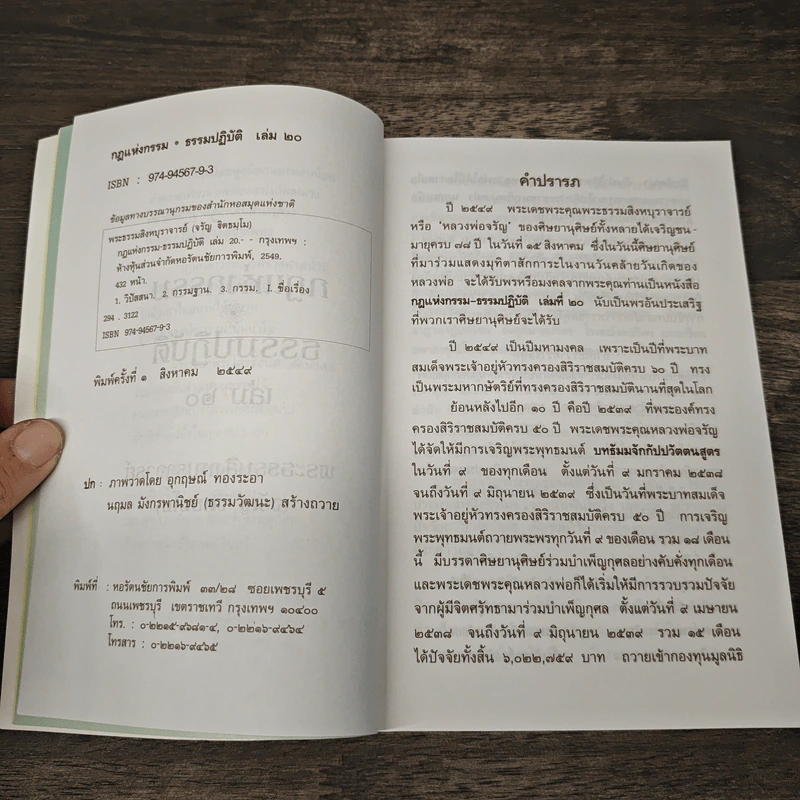 กฎแห่งกรรม • ธรรมปฏิบัติ เล่ม ๒๐
ISBN : 974-94567-9-3
ข้อมูลทางบรรณานุกรมของสำนักหอสมุดแห่งชาติ
พระธรรมสิงหบุราจารย์ (จรัญ ฐิตธมฺโม)
กฎแห่งกรรม-ธรรมปฏิบัติ เล่ม 20.- กรุงเทพฯ :
ห้างหุ้นส่วนจำกัดหอรัตนชัยการพิมพ์, 2549.
432 หน้า.
1. วิปัสสนา. 2. กรรมฐาน. 3. กรรม. I. ชื่อเรื่อง
294 . 3122
ISBN 974-94567-9-3
พิมพ์ครั้งที่ ๑ สิงหาคม ๒๕๔๙
ปก : ภาพวาดโดย อุกฤษณ์ ทองระอา
นฤมล มังกรพานิชย์ (ธรรมวัฒนะ) สร้างถวาย
พิมพ์ที่ : หอรัตนชัยการพิมพ์ ๓๓/๒๘ ซอยเพชรบุรี ๕
ถนนเพชรบุรี เขตราชเทวี กรุงเทพฯ ๑๐๔๐๐
โทร. : ๐-๒๒๑๕-๙๖๘๑-๔, ๐-๒๒๑๖-๙๔๖๔
โทรสาร : ๐-๒๒๑๖-๙๔๖๕
คำปรารภ
ปี ๒๕๔๙ พระเดชพระคุณพระธรรมสิงหบุราจารย์
หรือ 'หลวงพ่อจรัญ' ของศิษยานุศิษย์ทั้งหลายได้เจริญชน-
มายุครบ ๗๘ ปี ในวันที่ ๑๕ สิงหาคม ซึ่งในวันนี้ศิษยานุศิษย์
ที่มาร่วมแสดงมุทิตาสักการะในงานวันคล้ายวันเกิดของ
หลวงพ่อ จะได้รับพรหรือมงคลจากพระคุณท่านเป็นหนังสือ
กฎแห่งกรรม-ธรรมปฏิบัติ เล่มที่ ๒๐ นับเป็นพรอันประเสริฐ
ที่พวกเราศิษยานุศิษย์จะได้รับ
ปี ๒๕๔๙ เป็นปีมหามงคล เพราะเป็นปีที่พระบาท
สมเด็จพระเจ้าอยู่หัวทรงครองสิริราชสมบัติครบ ๖๐ ปี ทรง
เป็นพระมหากษัตริย์ที่ทรงครองสิริราชสมบัตินานที่สุดในโลก
ย้อนหลังไปอีก ๑๐ ปี คือปี ๒๕๓๙ ที่พระองค์ทรง
ครองสิริราชสมบัติครบ ๕๐ ปี พระเดชพระคุณหลวงพ่อจรัญ
ได้จัดให้มีการเจริญพระพุทธมนต์ บทธัมมจักกัปปวัตตนสูตร
ในวันที่ ๙ ของทุกเดือน ตั้งแต่วันที่ ๙ มกราคม ๒๕๓๘
จนถึงวันที่ ๙ มิถุนายน ๒๕๓๙ ซึ่งเป็นวันที่พระบาทสมเด็จ
พระเจ้าอยู่หัวทรงครองสิริราชสมบัติครบ ๕๐ ปี การเจริญ
พระพุทธมนต์ถวายพระพรทุกวันที่ ๙ ของเดือน รวม ๑๘ เดือน
นี้ มีบรรดาศิษยานุศิษย์ร่วมบำเพ็ญกุศลอย่างคับคั่งทุกเดือน
และพระเดชพระคุณหลวงพ่อก็ได้เริ่มให้มีการรวบรวมปัจจัย
จากผู้มีจิตศรัทธามาร่วมบำเพ็ญกุศล ตั้งแต่วันที่ ๙ เมษายน
๒๕๓๘ จนถึงวันที่ ๙ มิถุนายน ๒๕๓๙ รวม ๑๕ เดือน
ได้ปัจจัยทั้งสิ้น ๖,๐๒๒,๗๕๙ บาท ถวายเข้ากองทุนมูลนิธิ